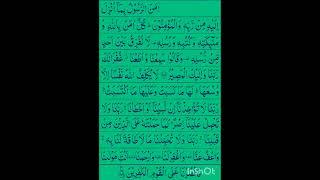 اٰمَنَ الرَّسُوْلُ بِمَاۤ اُنْزِلَ
اِلَيْهِ مِنْ رَّبِّهٖ وَ الْمُؤْمِنُوْنَ ؕ كُلٌّ اٰمَنَ بِاللّٰهِ وَ
مَلٰٓئِكَتِهٖ وَ كُتُبِهٖ وَ رُسُلِهٖ ۫ لَا نُفَرِّقُ بَيْنَ اَحَدٍ
مِّنْ رُّسُلِهٖ ۫ وَ قَالُوْا سَمِعْنَا وَ اَطَعْنَا ٘ۗ غُفْرَانَكَ
رَبَّنَا وَ اِلَيْكَ الْمَصِيْرُ لَا يُكَلِّفُ اللّٰهُ نَفْسًا اِلَّا
وُسْعَهَا ؕ لَهَا مَا كَسَبَتْ وَ عَلَيْهَا مَا اكْتَسَبَتْ ؕ
رَبَّنَا لَا تُؤَاخِذْنَاۤ اِنْ نَّسِيْنَاۤ اَوْ اَخْطَاْنَا ۚ رَبَّنَا وَ لَا
تَحْمِلْ عَلَيْنَاۤ اِصْرًا كَمَا حَمَلْتَهٗ عَلَى الَّذِيْنَ مِنْ
قَبْلِنَا ۚ رَبَّنَا وَ لَا تُحَمِّلْنَا مَا لَا طَاقَةَ لَنَا بِهٖ ۚ
وَ اعْفُ عَنَّا ٙ وَ اغْفِرْ لَنَا ٙ وَ ارْحَمْنَا ٙ اَنْتَ مَوْلٰىنَا
فَانْصُرْنَا عَلَى الْقَوْمِ الْكٰفِرِيْنَ
InShOt